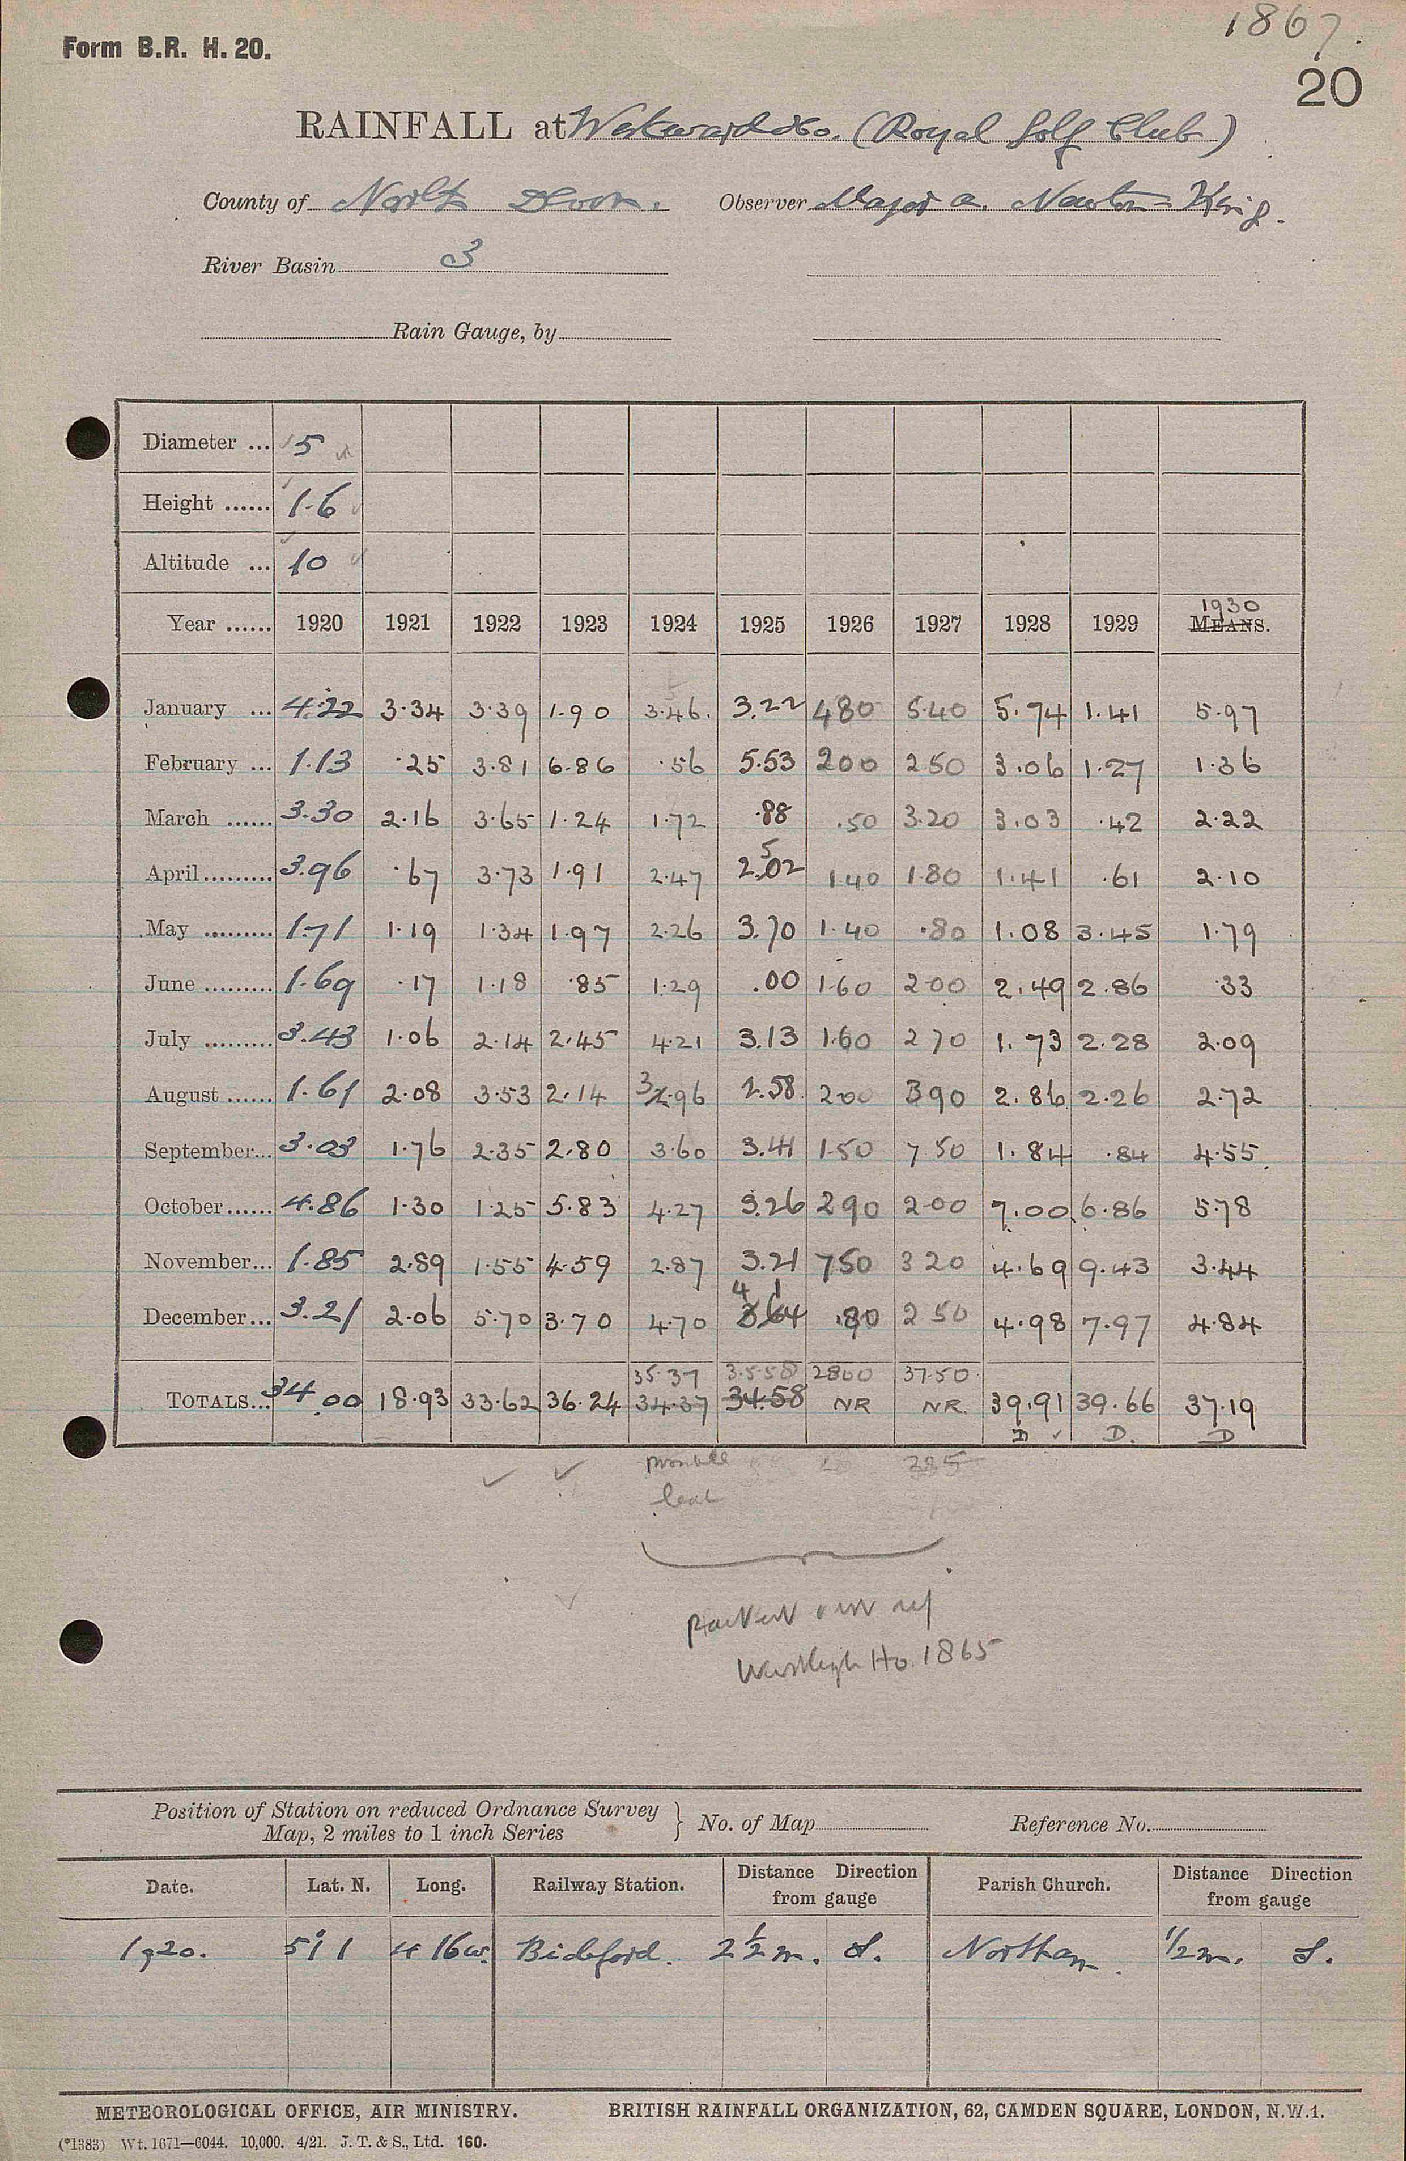 1867.
Form B.R. H. 20.
20
RAINFALL at Westward Ho. (Royal Golf Club)
County of North Devon. Observer Major A. Newton-King.
River Basin 3
Rain Gauge, by
Diameter ... 5
Height ...... 1.6
Altitude ... 10
1930
Year ...... 1920 1921 1922 1923 1924 1925 1926 1927 1928 1929 MEANS.
January ... 4.22 3.34 3.39 1.90 3.46. 3.22 480 5.40 5.74 1.41 5.97
February ... 1.13 .25 3.81 6.86 .56 5.53 200 250 3.06 1.27 1.36
March ...... 3.30 2.16 3.65 1.24 1.72 .88 .50 3.20 3.03 .42 2.22
5
April ......... 3.96 .67 3.73 1.91 2.47 2.02 1.40 1.80 1.41 .61 2.10
May ......... 1.71 1.19 1.34 1.97 2.26 3.70 1.40 .80 1.08 3.45 1.79
June ......... 1.69 .17 1.18 .85 1.29 .00 1.60 2.00 2.49 2.86 .33
July ......... 3.43 1.06 2.14 2.45 4.21 3.13 1.60 270 1.73 2.28 2.09
August ...... 1.61 2.08 3.53 2.14 3 2.96 2.58 200 390 2.86 2.26 2.72
September... 3.03 1.76 2.35 2.80 3.60 3.41 1.50 7.50 1.84 .84 4.55
October...... 4.86 1.30 1.25 5.83 4.27 3.26 290 2.00 7.00 6.86 5.78
November... 1.85 2.89 1.55 4.59 2.87 3.21 750 320 4.69 9.43 3.44
4 1
December... 3.21 2.06 5.70 3.70 4.70 3.64 .80 250 4.98 7.97 4.84
35.37 35.58 2800 37.50.
TOTALS... 34.00 18.93 33.62 36.24 34.37 34.58 NR NR. 39.91 39.66 37.19
D D. D
285
Westleigh Ho. 1865
Position of Station on reduced Ordnance Survey
Map, 2 miles to 1 inch Series } No. of Map Reference No.
Date. Lat. N. Long. Railway Station. Distance Direction from gauge Parish Church. Distance Direction from gauge
1920. 51° 1 4 16 w. Bideford. 2½ m. S. Northam. ½ m. S.
METEOROLOGICAL OFFICE, AIR MINISTRY. BRITISH RAINFALL ORGANIZATION, 62, CAMDEN SQUARE, LONDON, N.W.1.
(*1383) Wt. 1671—6044. 10,000. 4/21. J. T. & S., Ltd. 160.